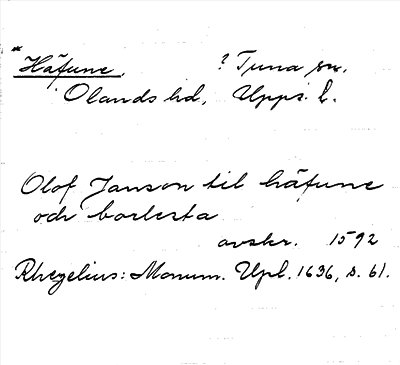 * Häfune. ? Tuna sn.
Olands hd, Upps. l.
Olof Janson til häfune
och borlesta
avskr. 1592
Rhezelius: Monum. Upl. 1636, s. 61.